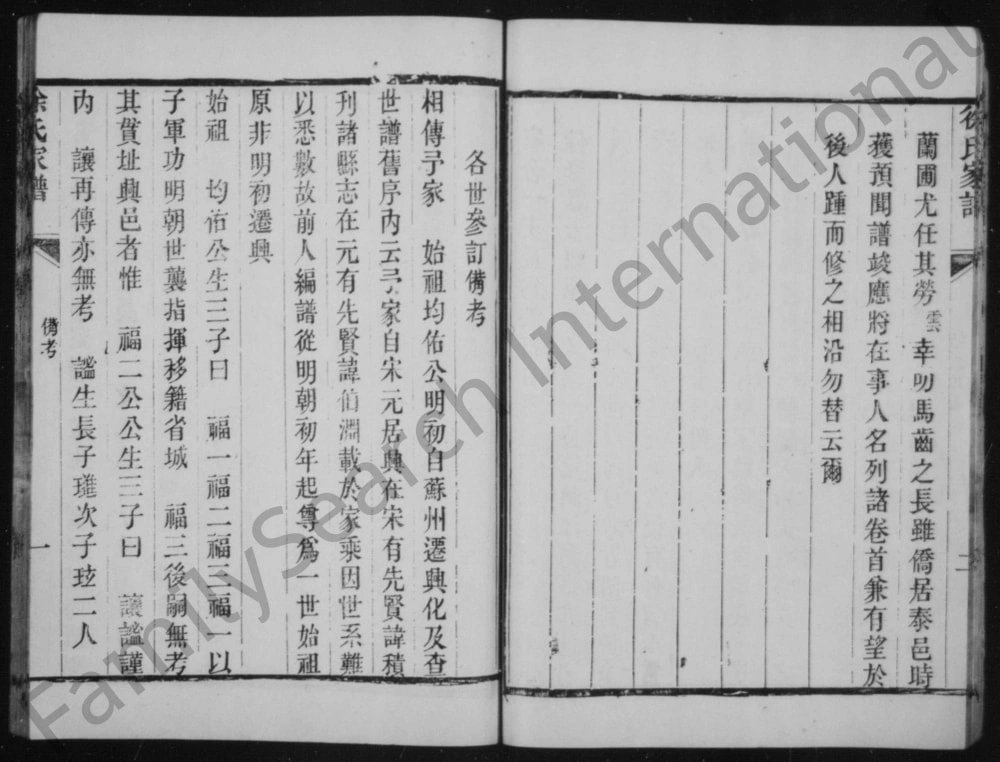 徐氏家譜
蘭圃尤任其勞雲幸叨馬齒之長雖僑居泰邑時
獲預聞譜竣應將在事人名列諸卷首兼有望於
後人踵而修之相沿勿替云爾
二
各世參訂備考
相傳予家　始祖均佑公明初自蘇州遷興化及查
世譜舊序內云予家自宋元居興在宋有先賢諱積
刊諸縣志在元有先賢諱伯淵載於家乘因世系難
以悉數故前人編譜從明朝初年起尊為一世始祖
原非明初遷興
始祖　均佑公生三子曰　福一福二福三福一以
子軍功明朝世襲指揮移籍省城　福三後嗣無考
其實址興邑者惟　福二公公生三子曰　讓謐謹
內　讓再傳亦無考　謐生長子璀次子玹二人
徐氏家譜
備考
一
FamilySearch International